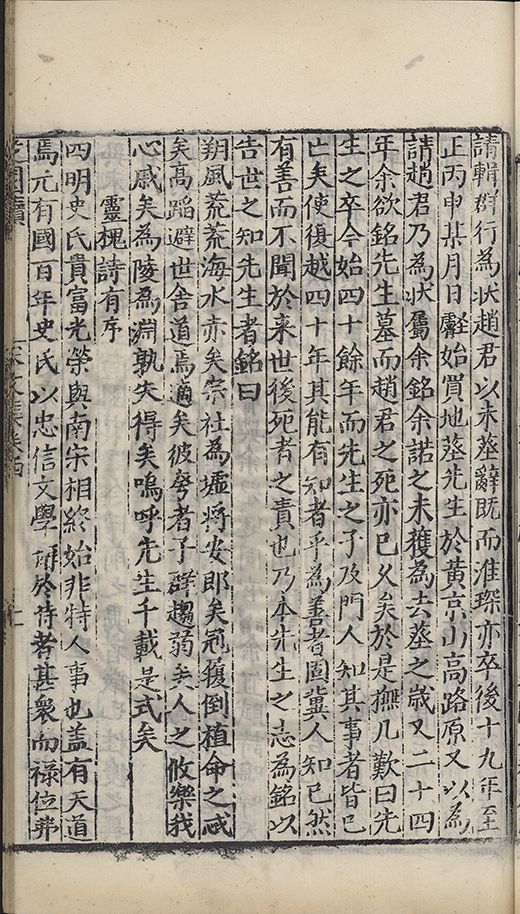 請輯群行為状趙君以未塟辭既而淮琛亦卒後十九年至
正丙申某月日鼒始買地塟先生於黄京山高路原又以為
請趙君乃為状屬余銘余諾之未獲為去塟之歳又二十四
年余欲銘先生墓而趙君之死亦已乆矣於是撫几歎曰先
生之卒今始四十餘年而先生之子及門人知其事者皆已
亡矣使復越四十年其能有知者乎為善者固冀人知已然
有善而不聞於来世後死者之責也乃本先生之志為銘以
告世之知先生者銘曰
朔風荒荒海水赤矣宗社為墟將安即矣冠履倒植命之忒
矣髙蹈避世舍道焉適矣彼髦者子群趨弱矣人之攸樂我
心慼矣為陵為淵孰失得矣嗚呼先生千載是式矣
靈槐詩有序
四明史氏貴富光榮與南宋相終始非特人事也盖有天道
焉元有國百年史氏以忠信文學諸於待者甚衆而祿位弗
芝園續